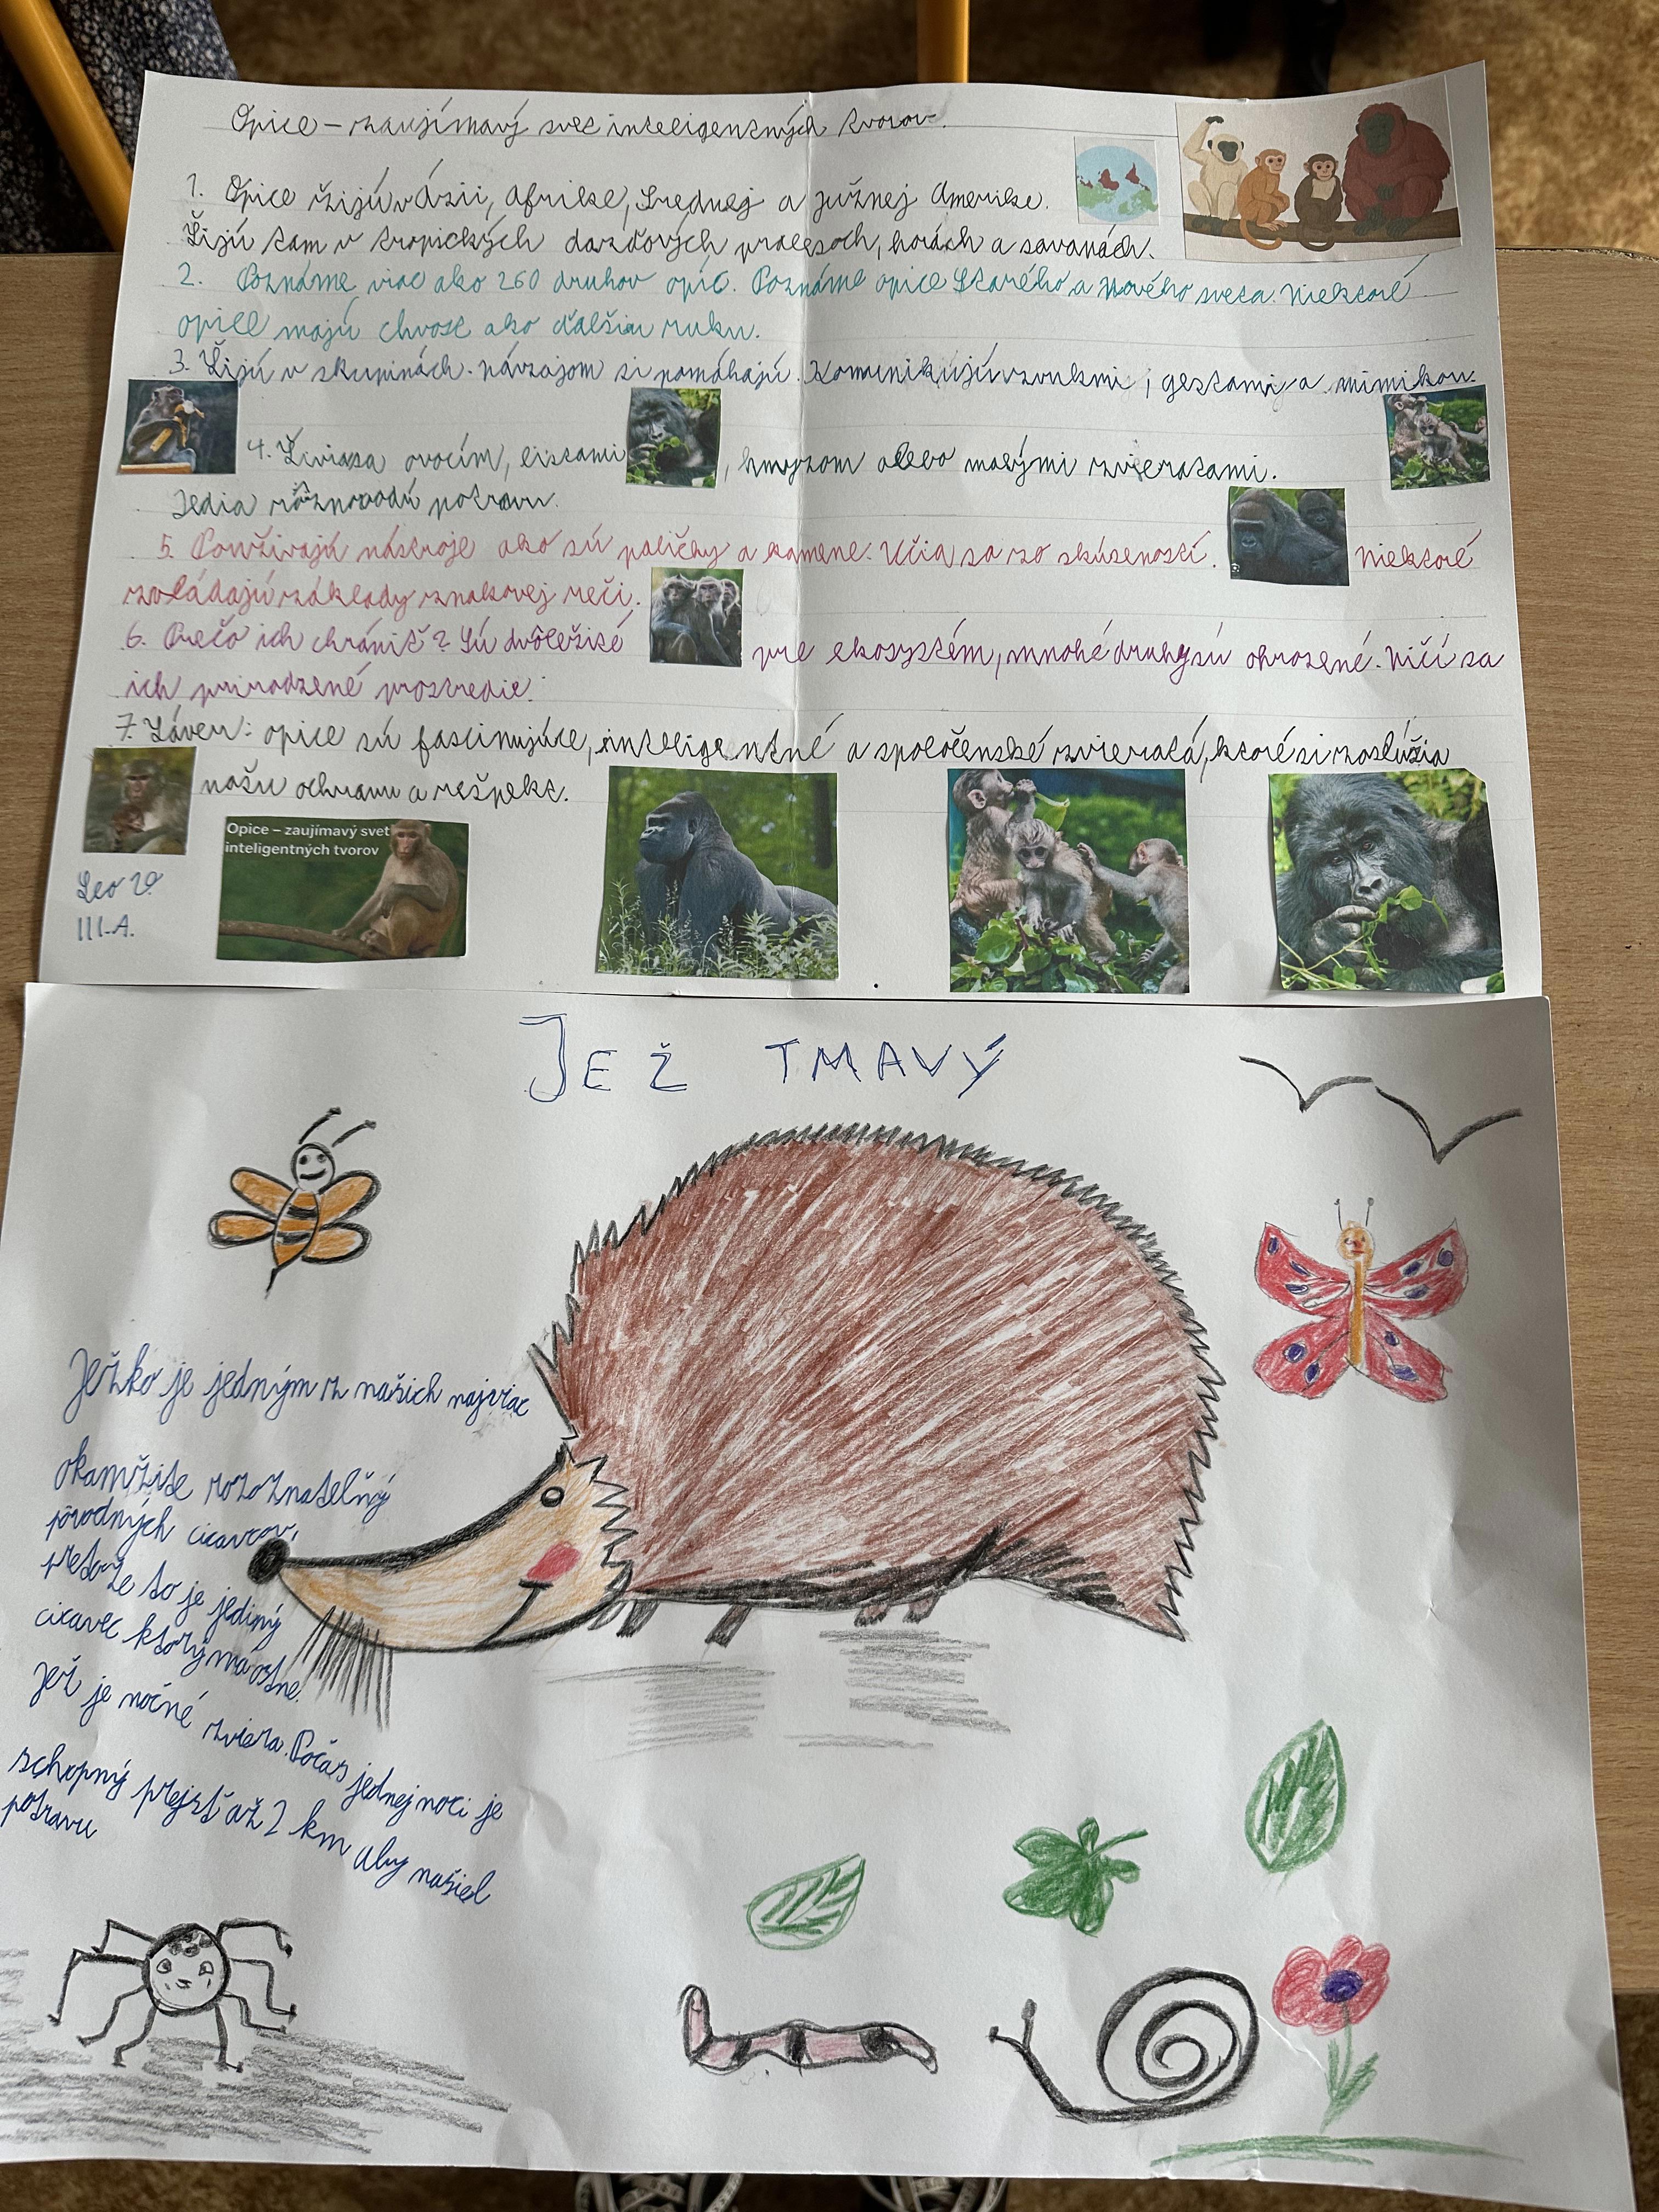 Opice – zaujímavý svet inteligentných tvorov.
1. Opice žijú v Ázii, Afrike, Strednej a južnej Amerike.
Žijú tam v tropických dažďových pralesoch, horách a savanách.
2. Poznáme viac ako 260 druhov opíc. Poznáme opice Starého a Nového sveta. Niektoré
opice majú chvost ako ďalšiu ruku.
3. Žijú v skupinách. Návzajom si pomáhajú. Komunikujú zvukmi, gestami a mimikou.
4. Živia sa ovocím, listami , hmyzom alebo malými zvieratami.
Jedia potravu.
5. Používajú nástroje ako sú paličky a kamene. Učia sa zo skúseností. Niektoré
zvládajú základy znakovej reči.
6. Prečo ich chrániť? Sú dôležité pre ekosystém, mnohé druhy sú ohrozené. Ničí sa
ich prirodzené prostredie.
7. Záver: opice sú fascinujúce, inteligentné a spoločenské zvieratá, ktoré si zaslúžia
našu ochranu a rešpekt.
Opice – zaujímavý svet
inteligentných tvorov
Leo
III.A.
JEŽ TMAVÝ
Ježko je jedným z našich najviac
okamžite rozoznatelný
pôvodných cicavcov,
pretože to je jediný
cicavec ktorý má ostne.
Jež je nočné zviera. Počas jednej noci je
schopný prejsť až 2 km aby našiel
potravu